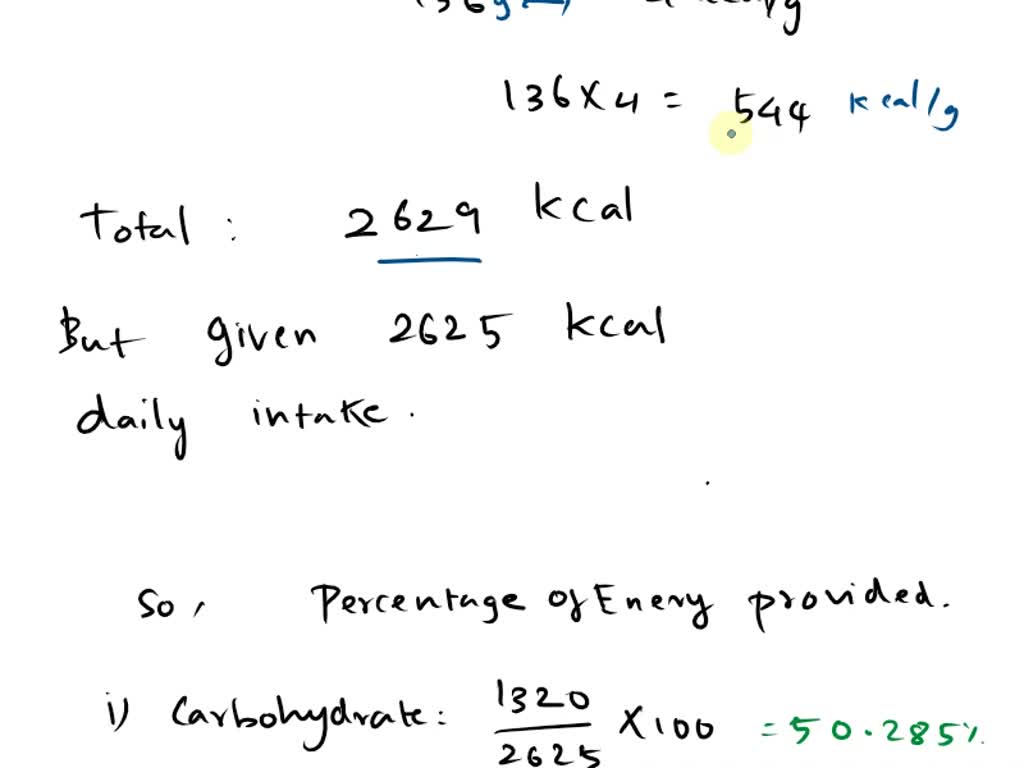 136g
136 X 4 = 544 kcal/g
Total : 2629 kcal
But given 2625 kcal
daily intake .
So , Percentage of Enery provided.
i) Carbohydrate : 1320
2625 X 100 = 50.285%